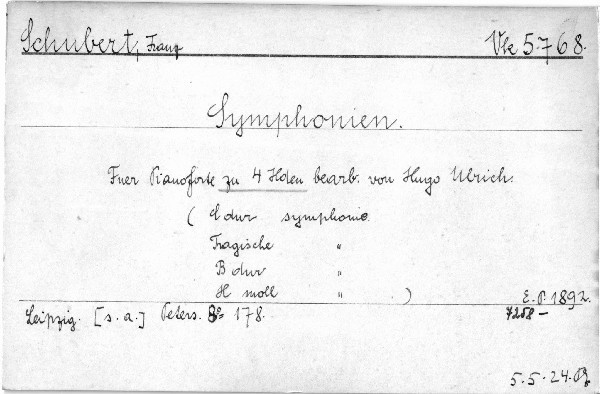 Schubert, Franz Vke 5.768.
Symphonien.
Fuer Pianoforte zu 4 Hden bearb. von Hugo Ulrich.
( C dur symphonie.
Tragische "
B dur "
H moll " )
E. P. 1892.
Leipzig. [s. a.] Peters. 8° 178. 7258 –
5.5.24.